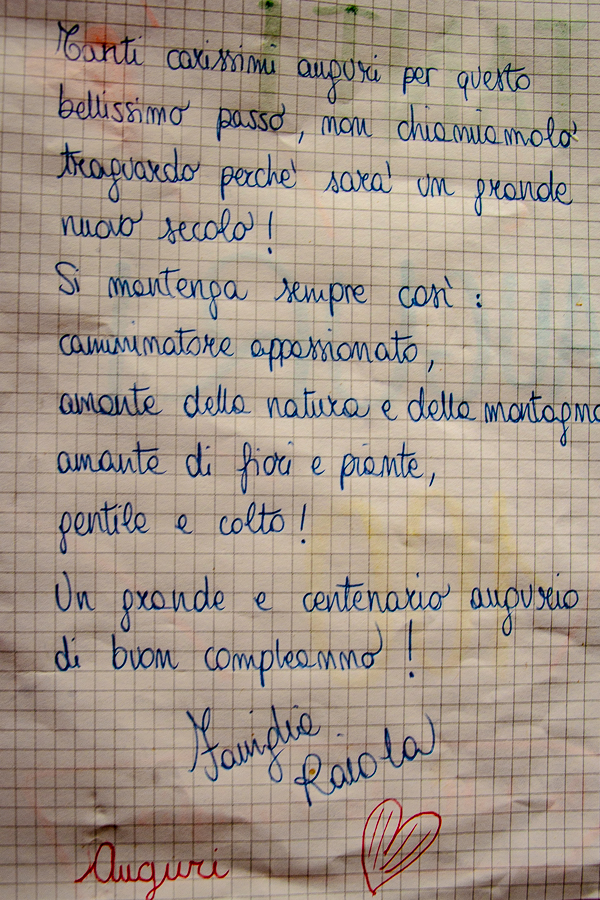 Tanti carissimi auguri per questo
bellissimo passo, non chiamiamolo
traguardo perchè sarà un grande
nuovo secolo!
Si mantenga sempre così:
camminatore appassionato,
amante della natura e della montagna
amante di fiori e piante,
gentile e colto!
Un grande e centenario augurio
di buon compleanno!
Famiglia
Raiola
Auguri